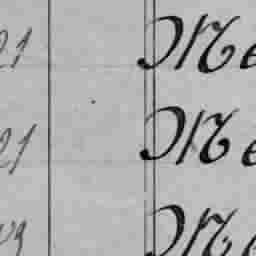 21 Me
21 Me
Me